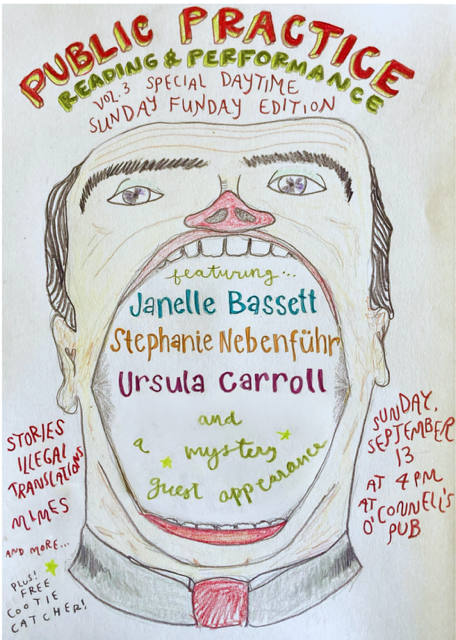 PUBLIC PRACTICE
READING & PERFORMANCE
VOL.3 SPECIAL DAYTIME
SUNDAY FUNDAY EDITION
featuring...
Janelle Bassett
Stephanie Nebenführ
Ursula Carroll
and
a mystery
guest appearance
STORIES
ILLEGAL
TRANSLATIONS
MIMES
AND MORE...
PLUS!
FREE
COOTIE
CATCHER!
SUNDAY,
SEPTEMBER
13
AT 4 PM
AT
O'CONNELL'S
PUB